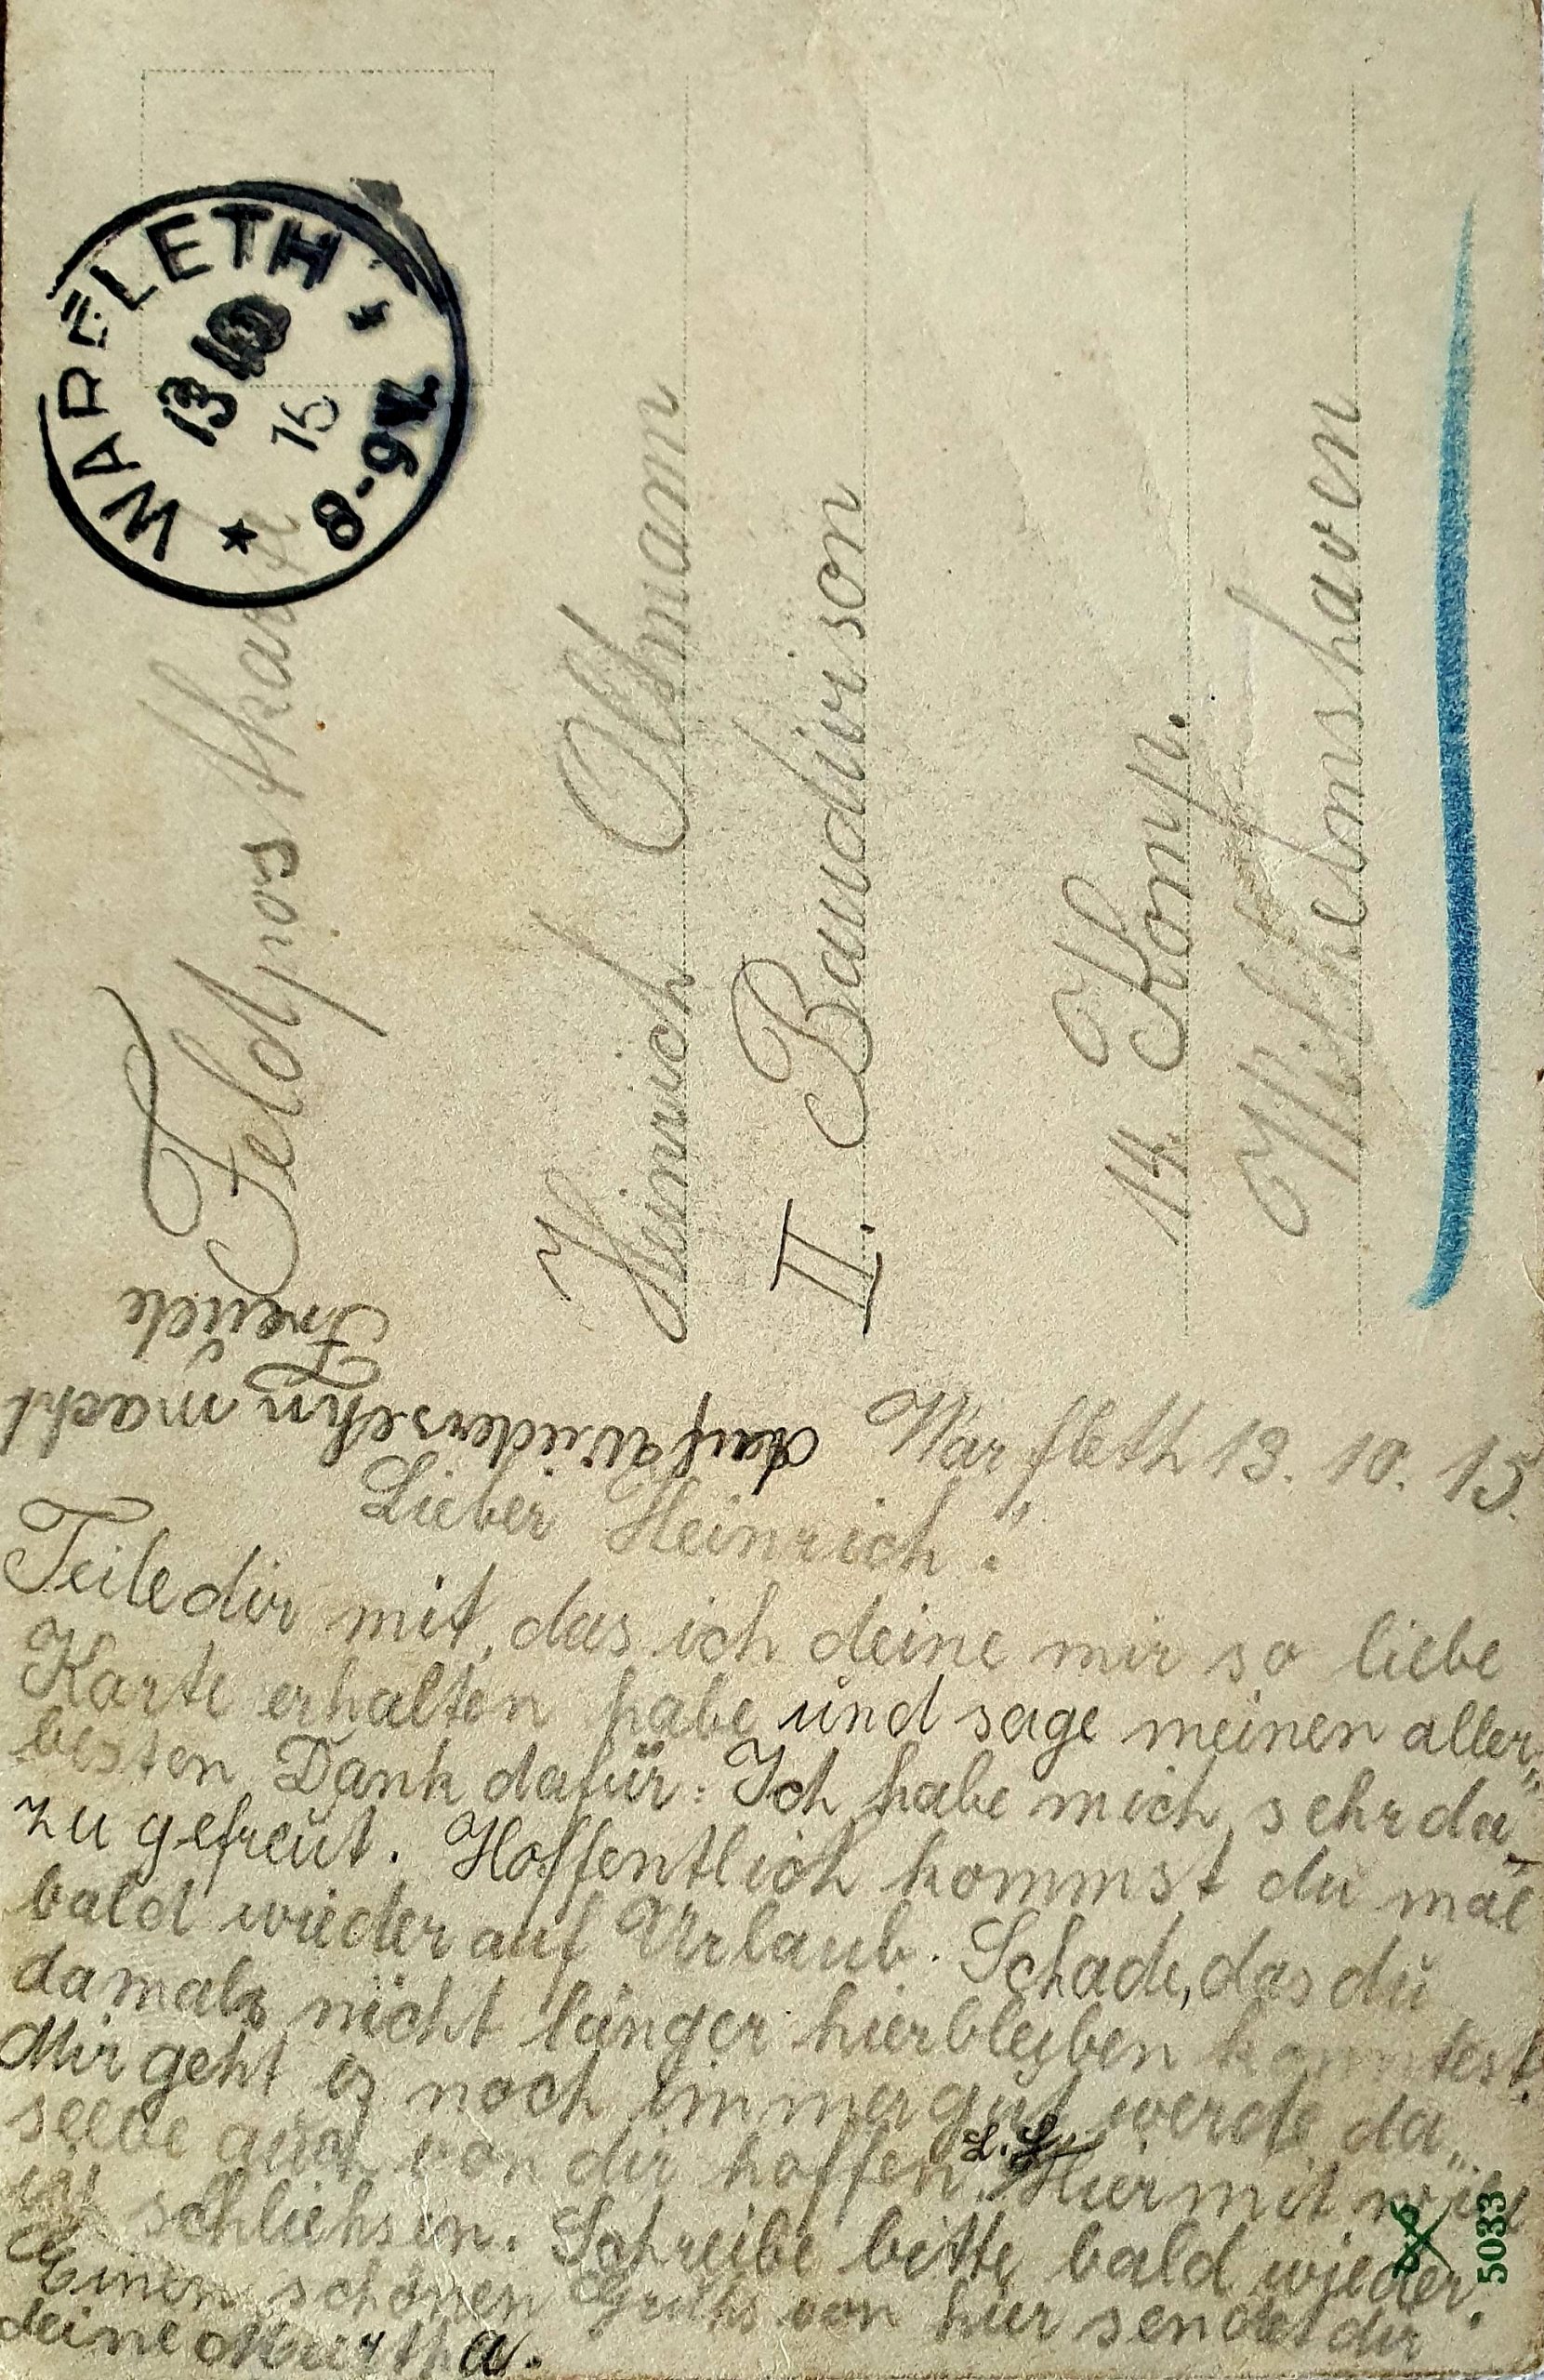 WARFLETH
13 10
15
8-9 V.
Feldpostkarte
Heinrich Oltmann
II. Baudivison
14. Komp.
Wilhelmshaven
Warfleth 13. 10. 15.
Lieber Heinrich!"
Teile dir mit, das ich deine mir so liebe
Karte erhalten habe und sage meinen aller„
besten Dank dafür. Ich habe mich sehr da„
zu gefreut. Hoffentlich kommst du mal
bald wieder auf Urlaub. Schade, das du
damals nicht länger hierbleiben konntest.
Mir geht es noch immer gut werde da„
selbe auch von dir hoffen. L. L. Hiermit will
ich schliehsen. Schreibe bitte bald wieder.
Einen schönen Gruhs von hier sendet dir
deine Martha.
auf wiedersehn macht
Freude
5033